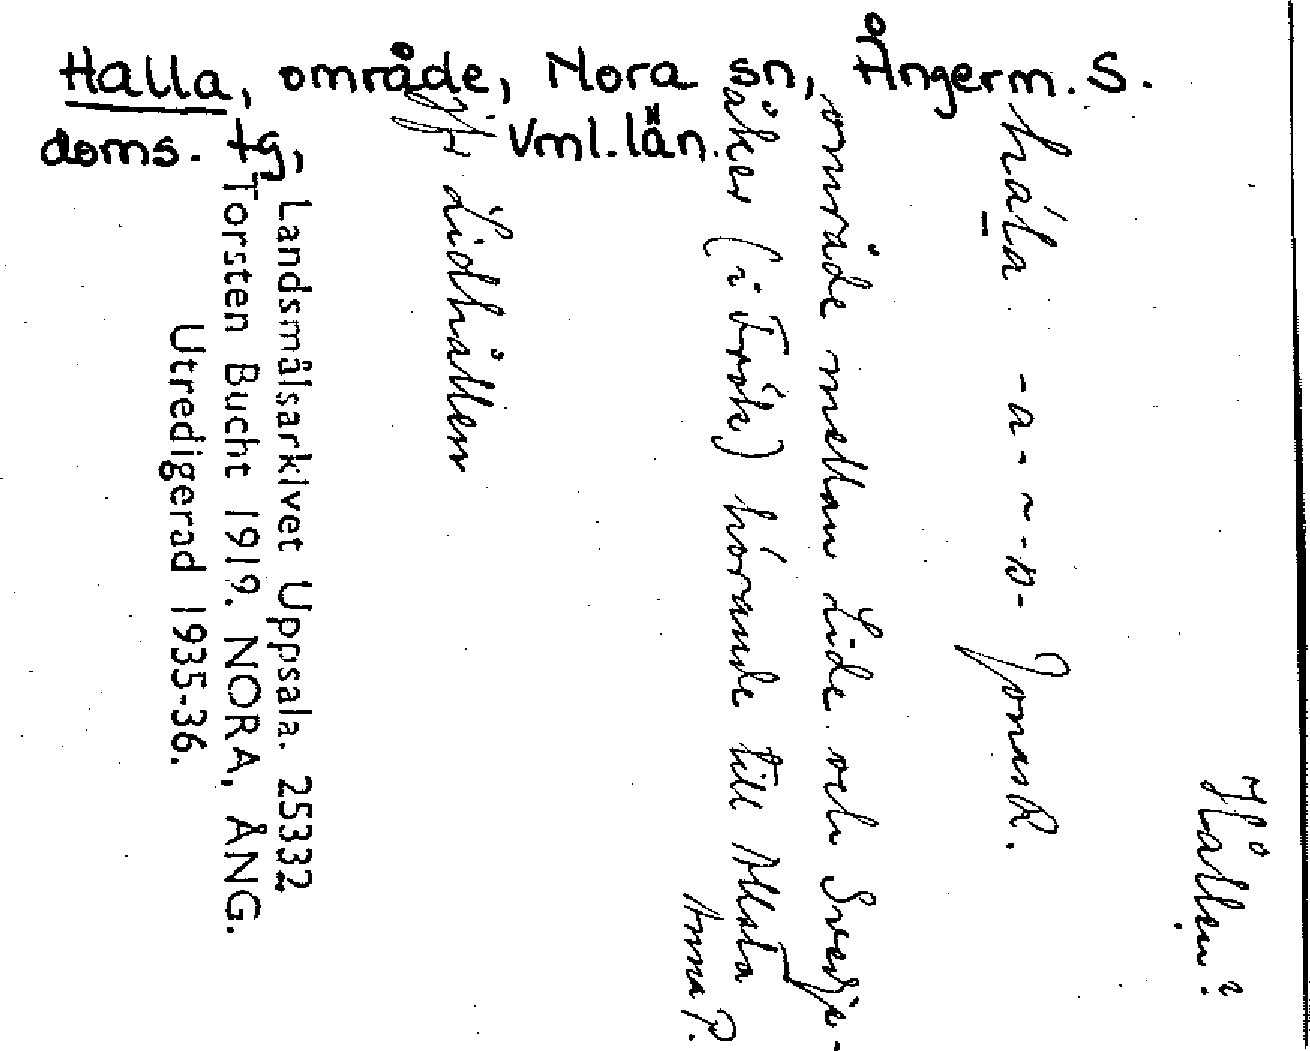 Halla, område, Nora sn, Ångerm. S.
doms. tg, Vml. län.
Hållen?
håla -a- ~ -o- Jonas R.
område mellan Lide och Svedje-
åker (i Fröh) hörande till Allsta
Anna P.
jfr Lidhållen
Landsmålsarkivet Uppsala. 25332
Torsten Bucht 1919. NORA, ÅNG.
Utredigerad 1935-36.